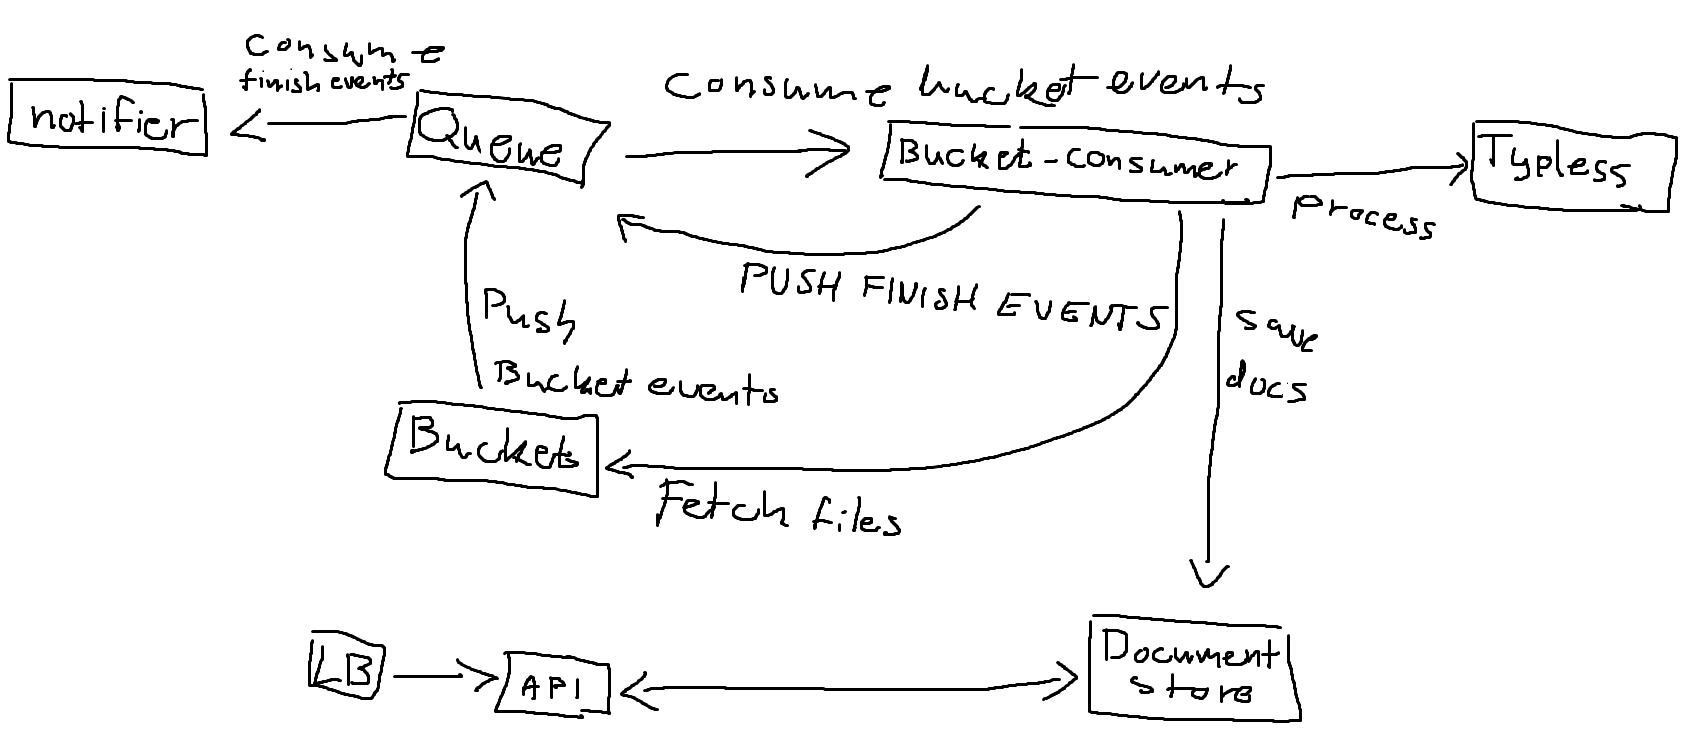 Consume
finish events
notifier
Queue
Consume bucket events
Bucket-consumer
Typless
process
PUSH FINISH EVENTS
Push
Bucket events
save
docs
Buckets
Fetch files
LB
API
Document
store